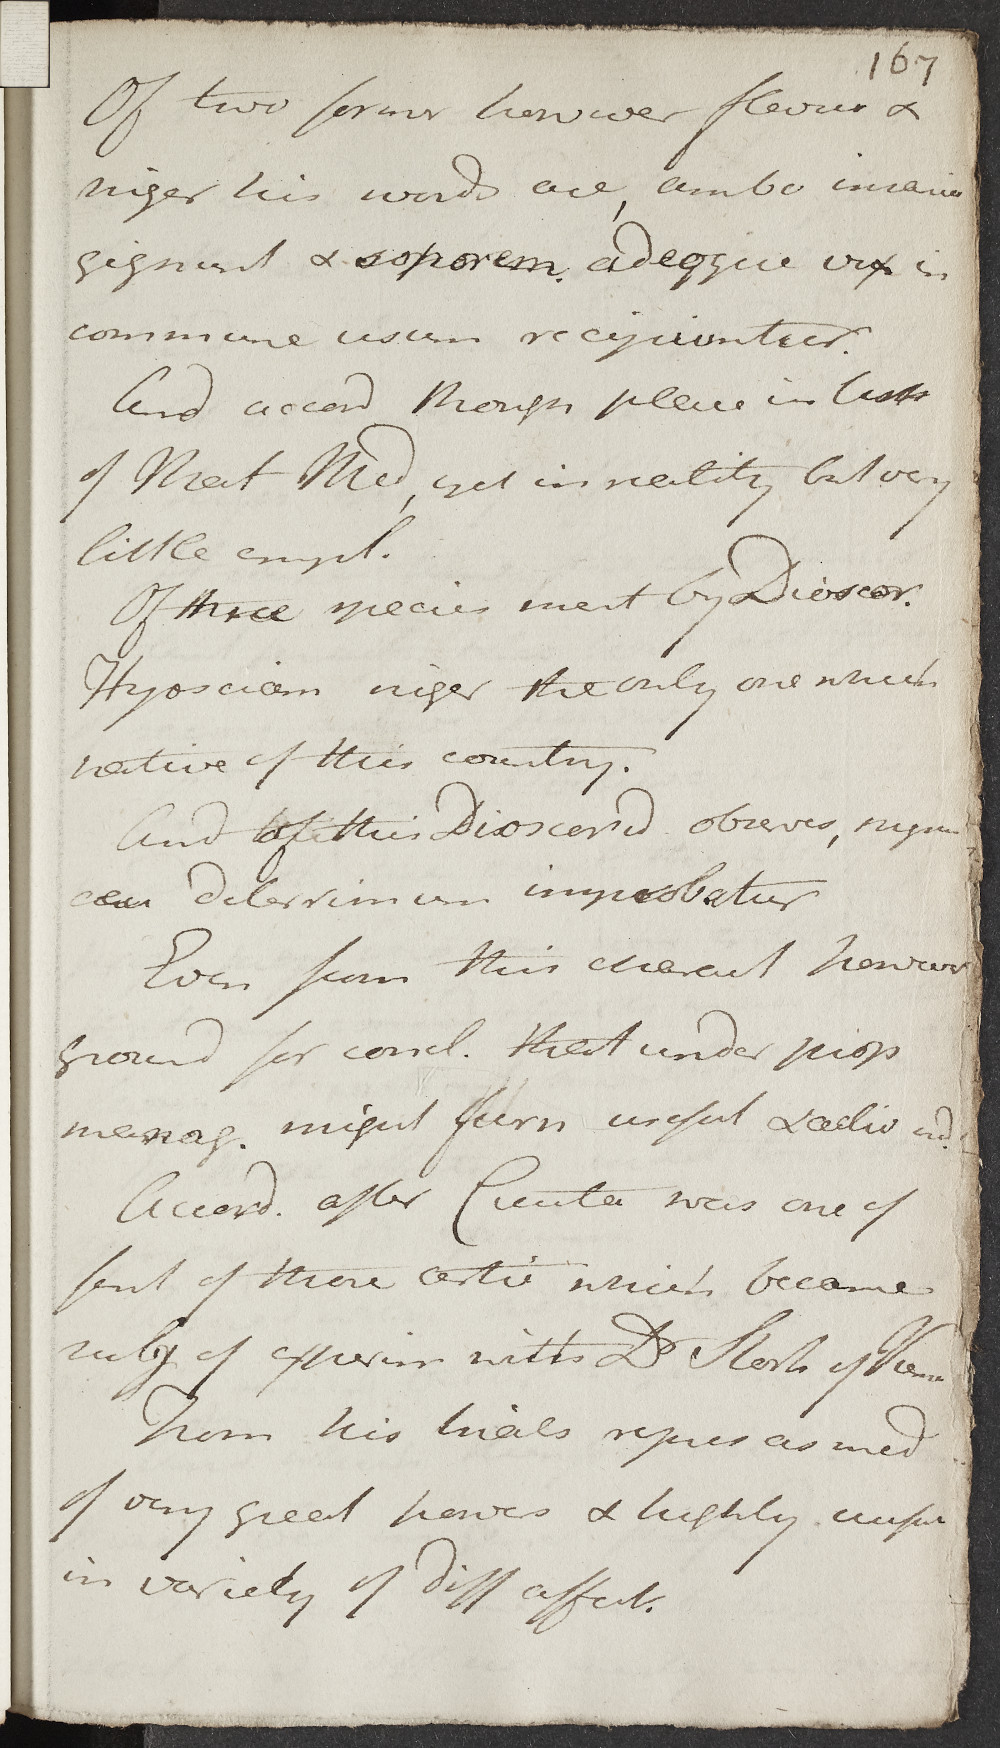 167
Of two former however flavus &
niger his words are, ambo insaniam
gignunt & soporem. adeoque vix in
commune usum recipiuntur.
And accord though place in lists
of Mat Med, yet in reality but very
little empl.
Of three species ment by Dioscor.
Hyosciam niger the only one which
native of this country.
And of this Dioscorid observes, nigrum
ceu deterrimum improbatur
Even from this charact however
ground for concl. that under prop
manag. might furn useful & activ med.
Accord. after Cicuta was one of
first of those artic which became
subj of experim with Dr Stork of Vienn
From his trials repres as med
of very great powers & highly usefu
in variety of diff affect.